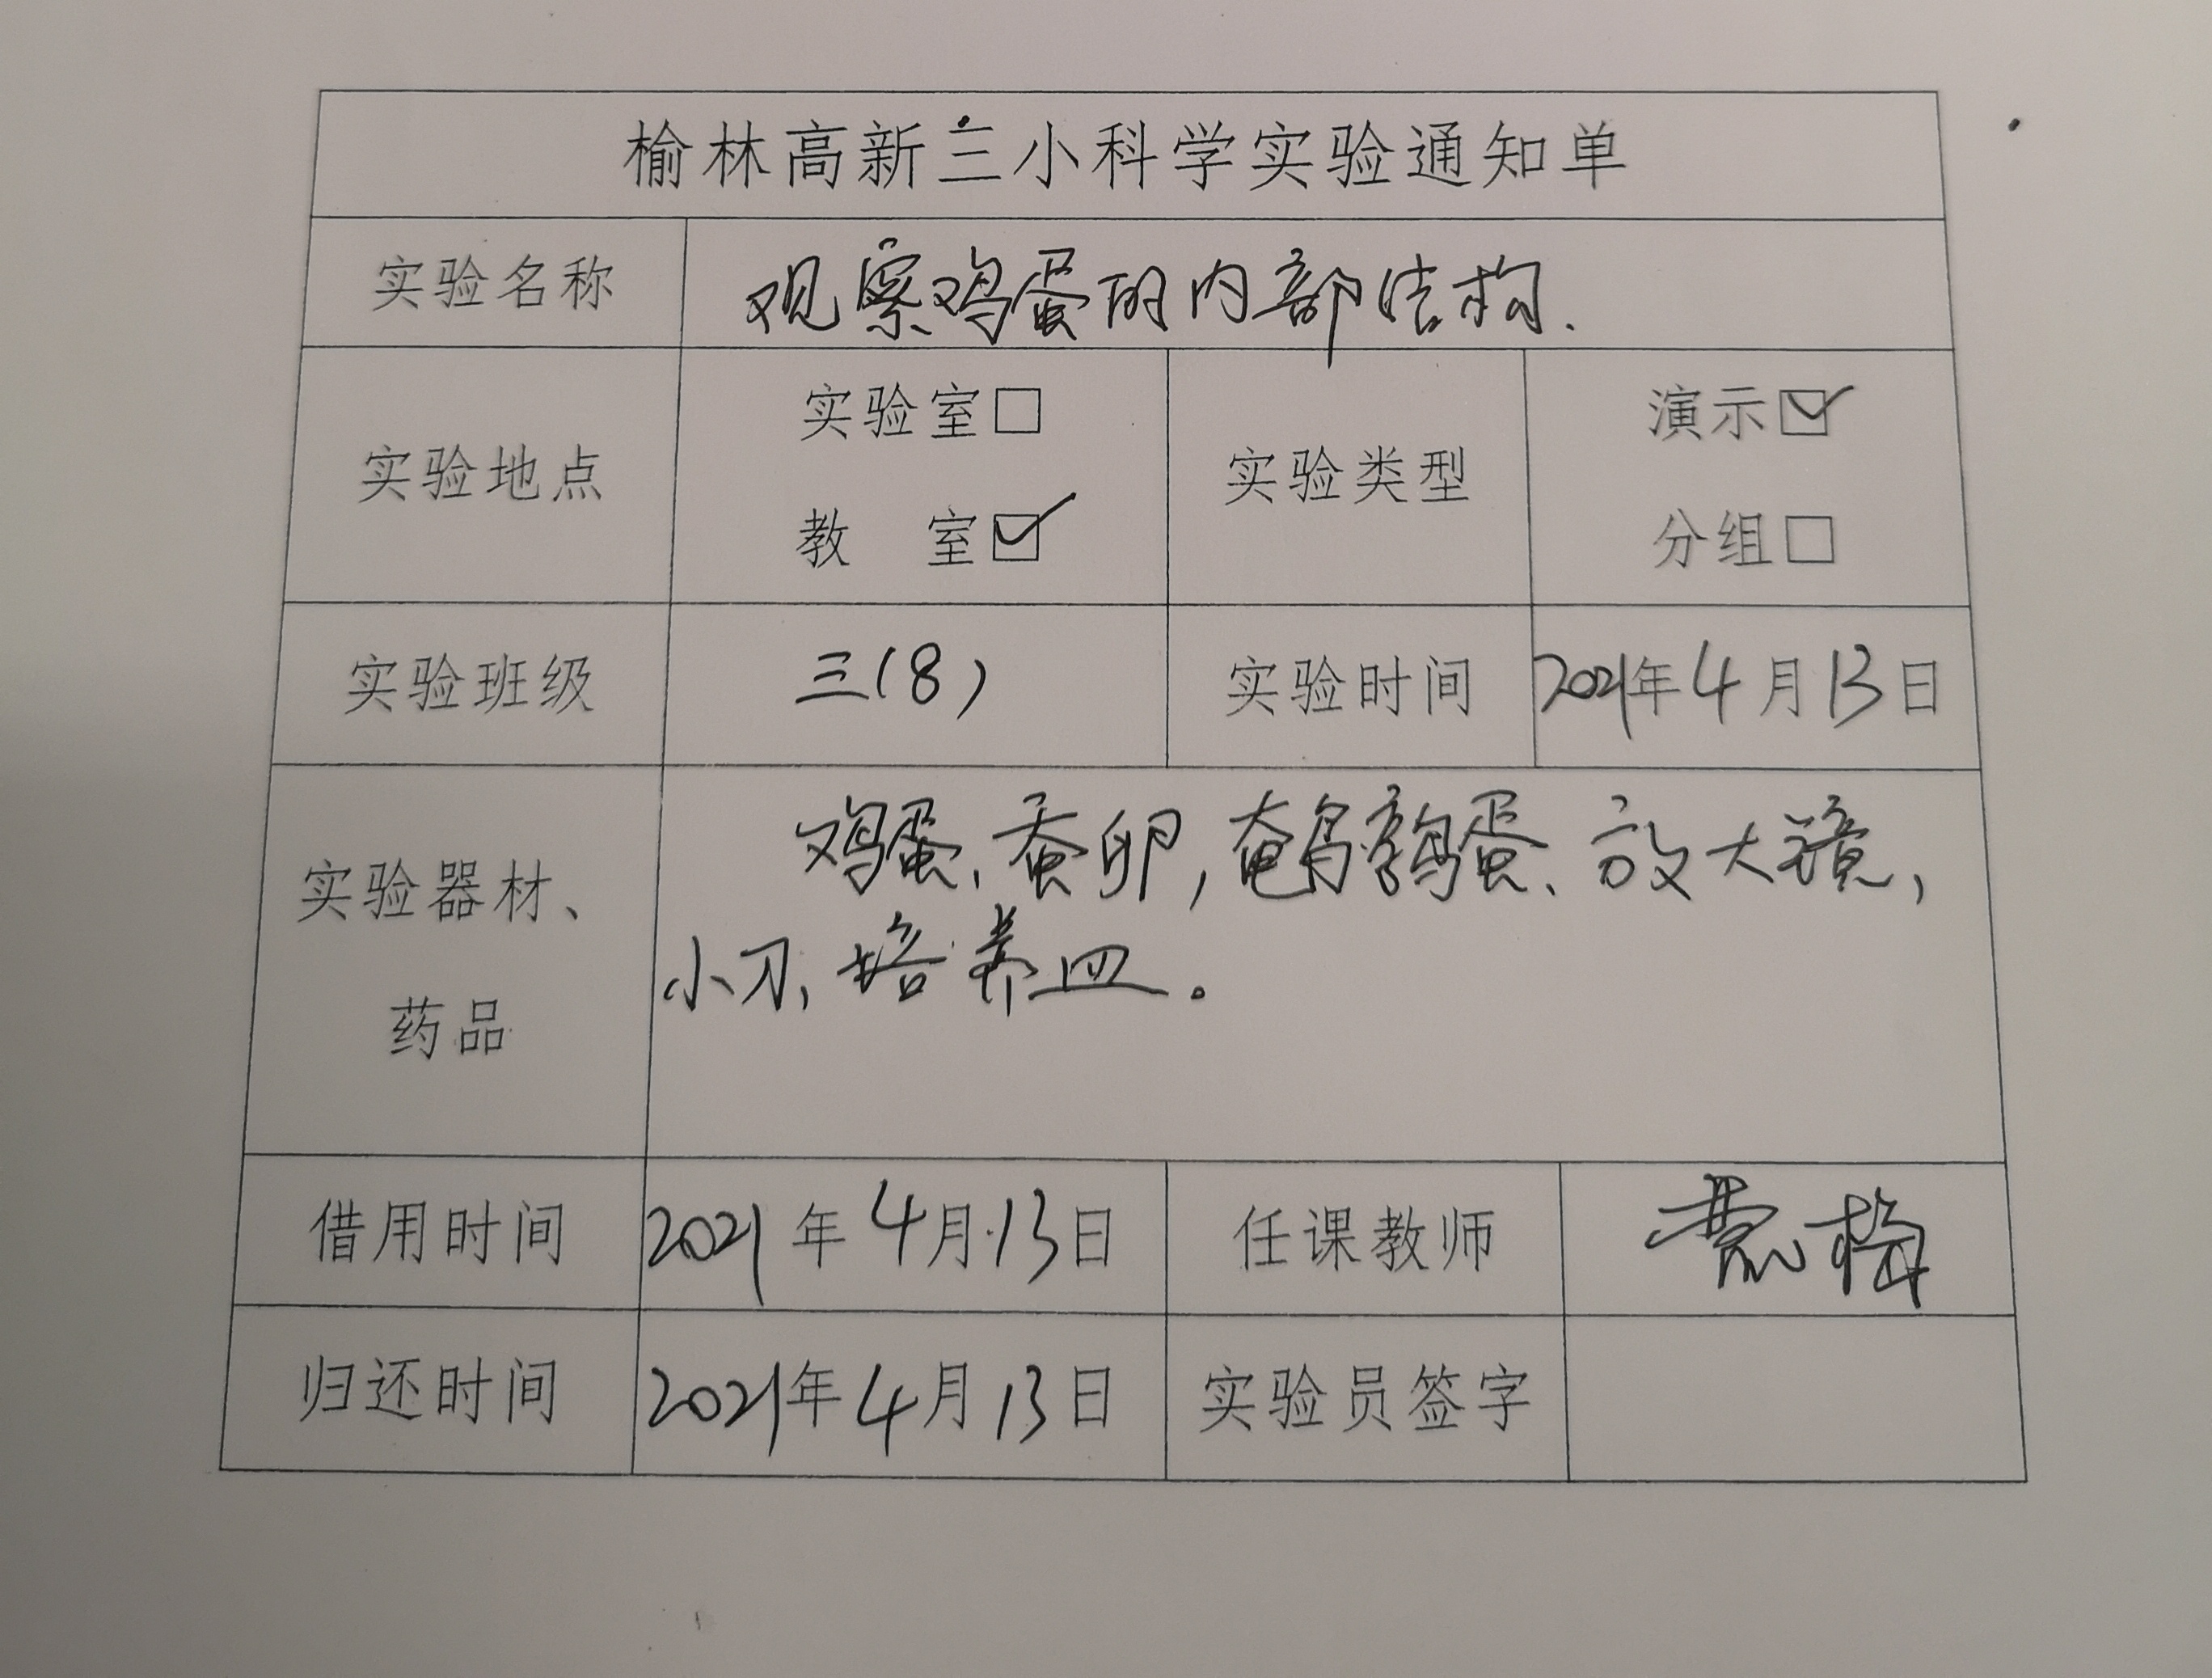 榆林高新三小科学实验通知单
实验名称 观察鸡蛋的内部结构.
实验地点 实验室□ 教 室☑ 实验类型 演示☑ 分组□
实验班级 三(8) 实验时间 2021年4月13日
实验器材、药品 鸡蛋、蚕卵,鹌鹑蛋、放大镜,
小刀、培养皿。
借用时间 2021年4月13日 任课教师
归还时间 2021年4月13日 实验员签字